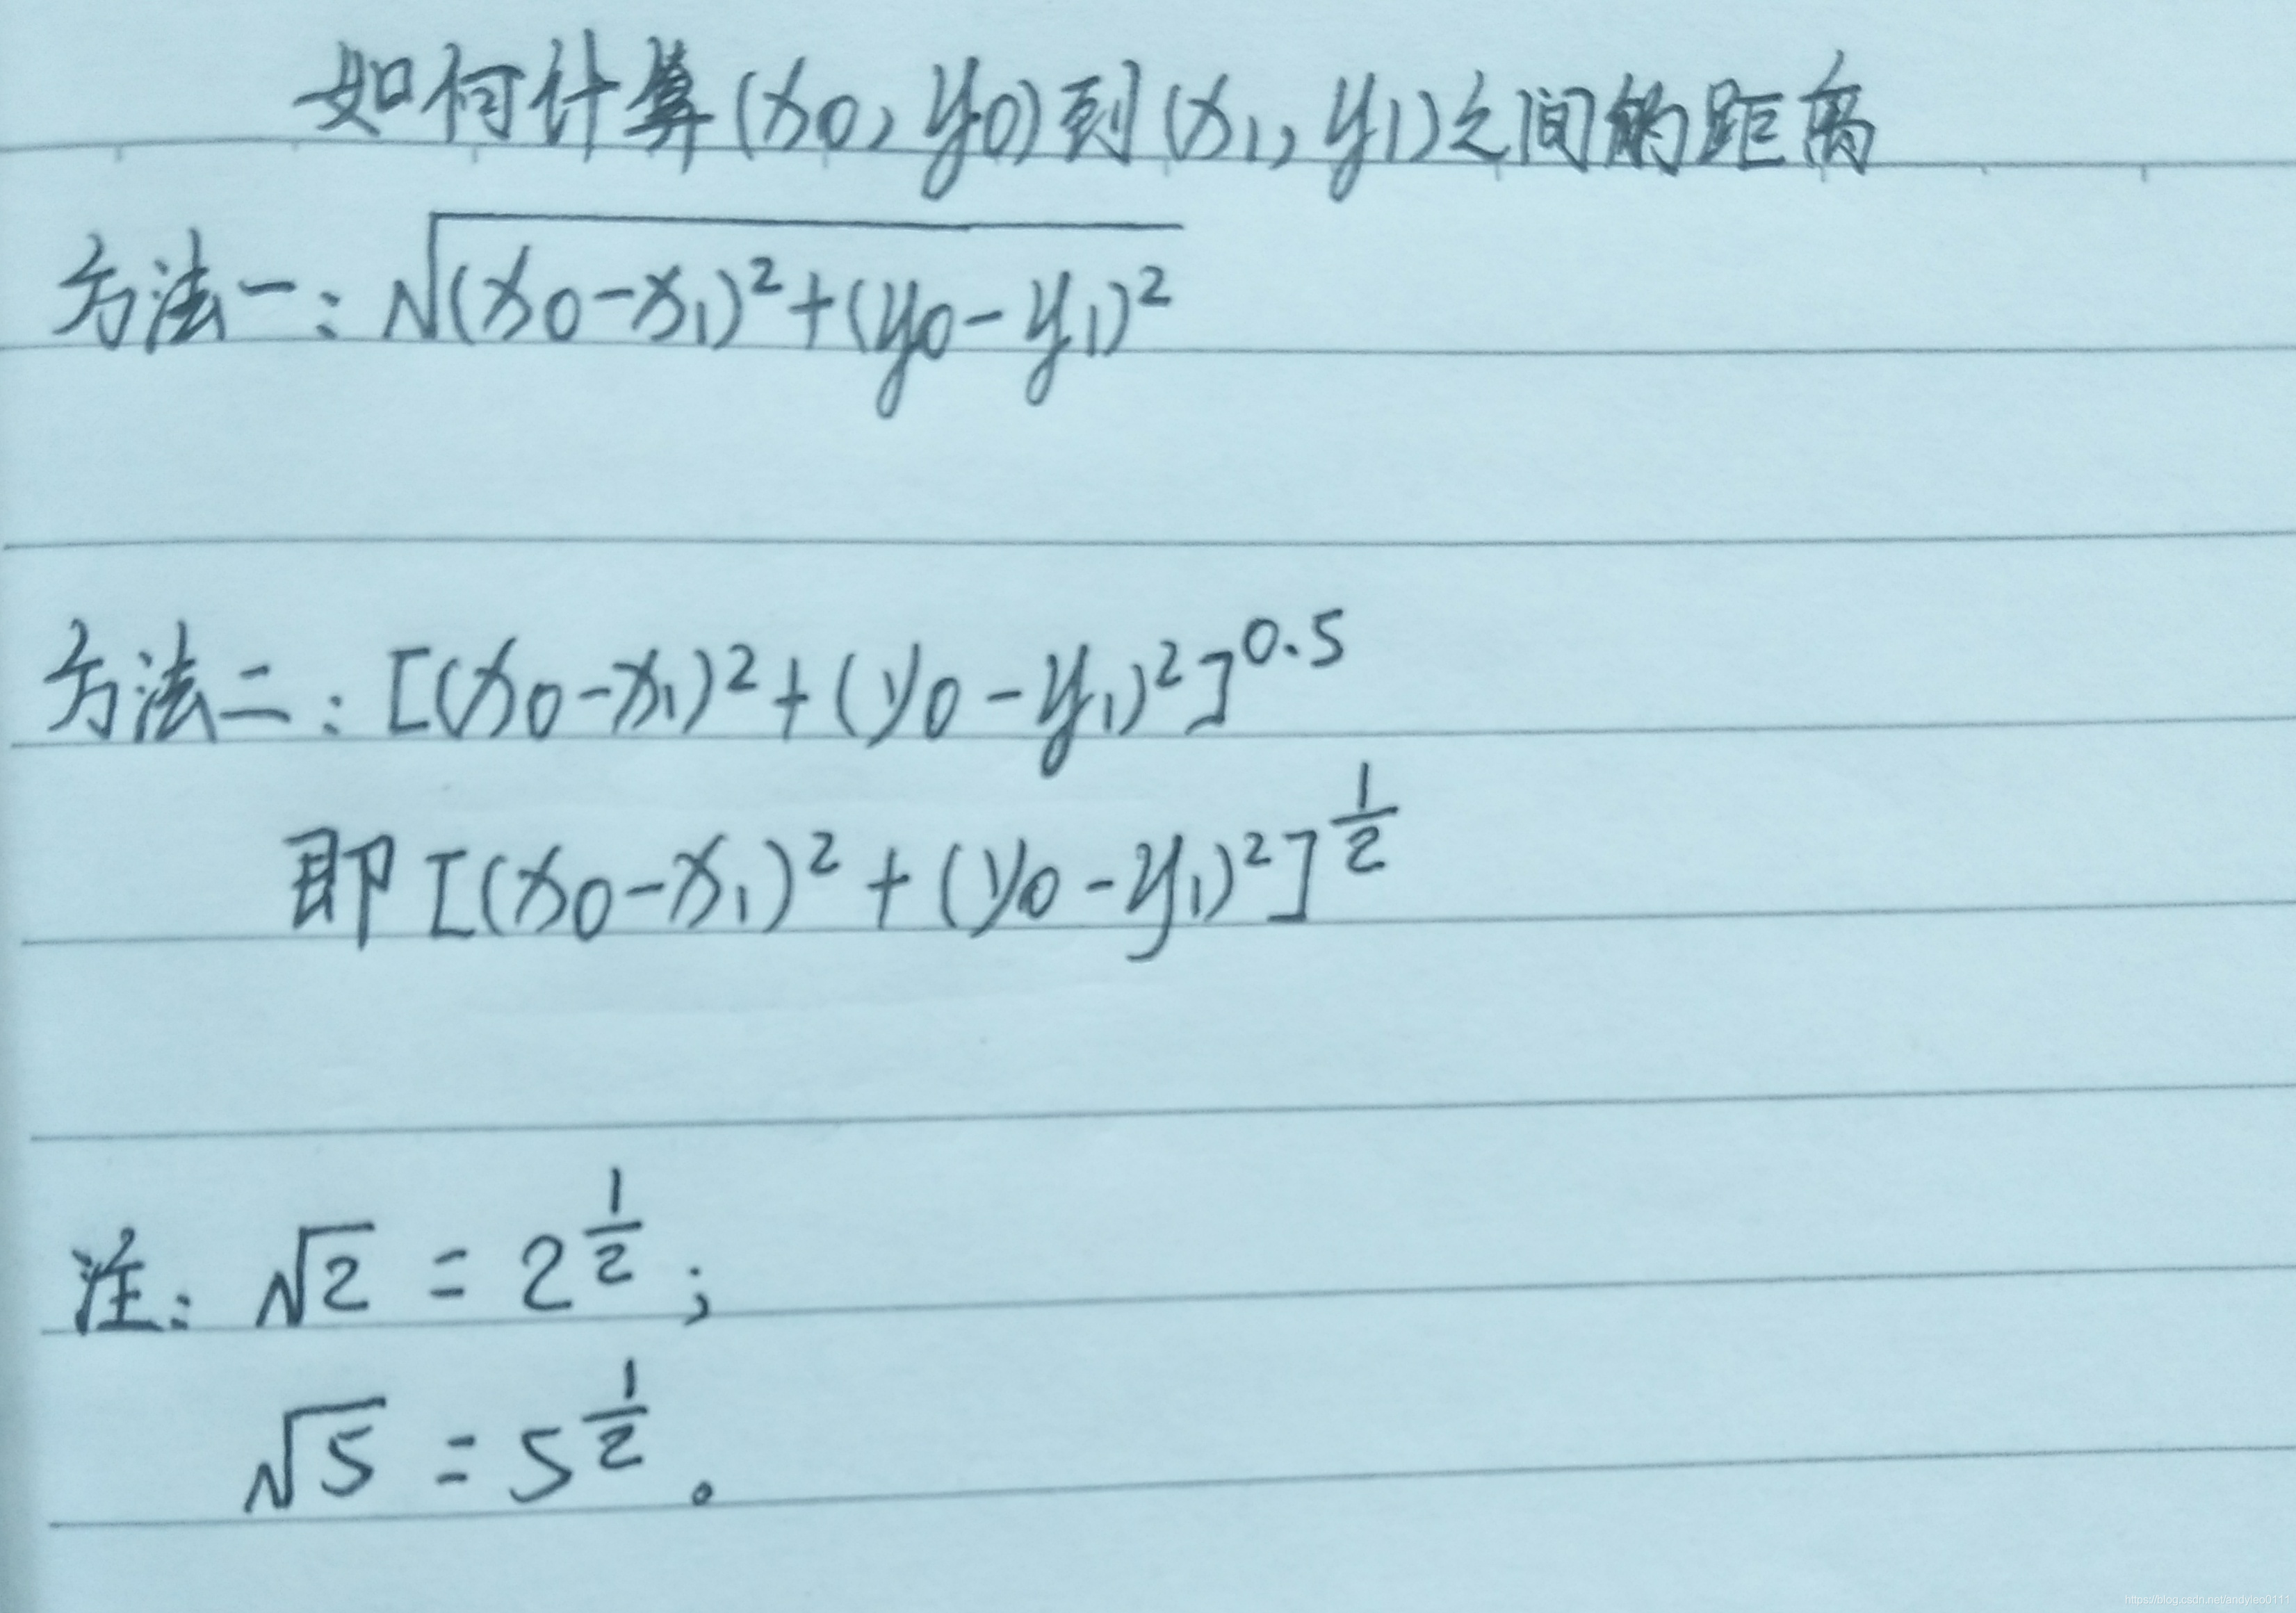 如何计算(x0, y0)到(x1, y1)之间的距离
方法一: √(x0-x1)²+(y0-y1)²
方法二: [(x0-x1)²+(y0-y1)²]^0.5
即[(x0-x1)²+(y0-y1)²]^1/2
注: √2 = 2^1/2;
√5 = 5^1/2。
https://blog.csdn.net/andyleo0111